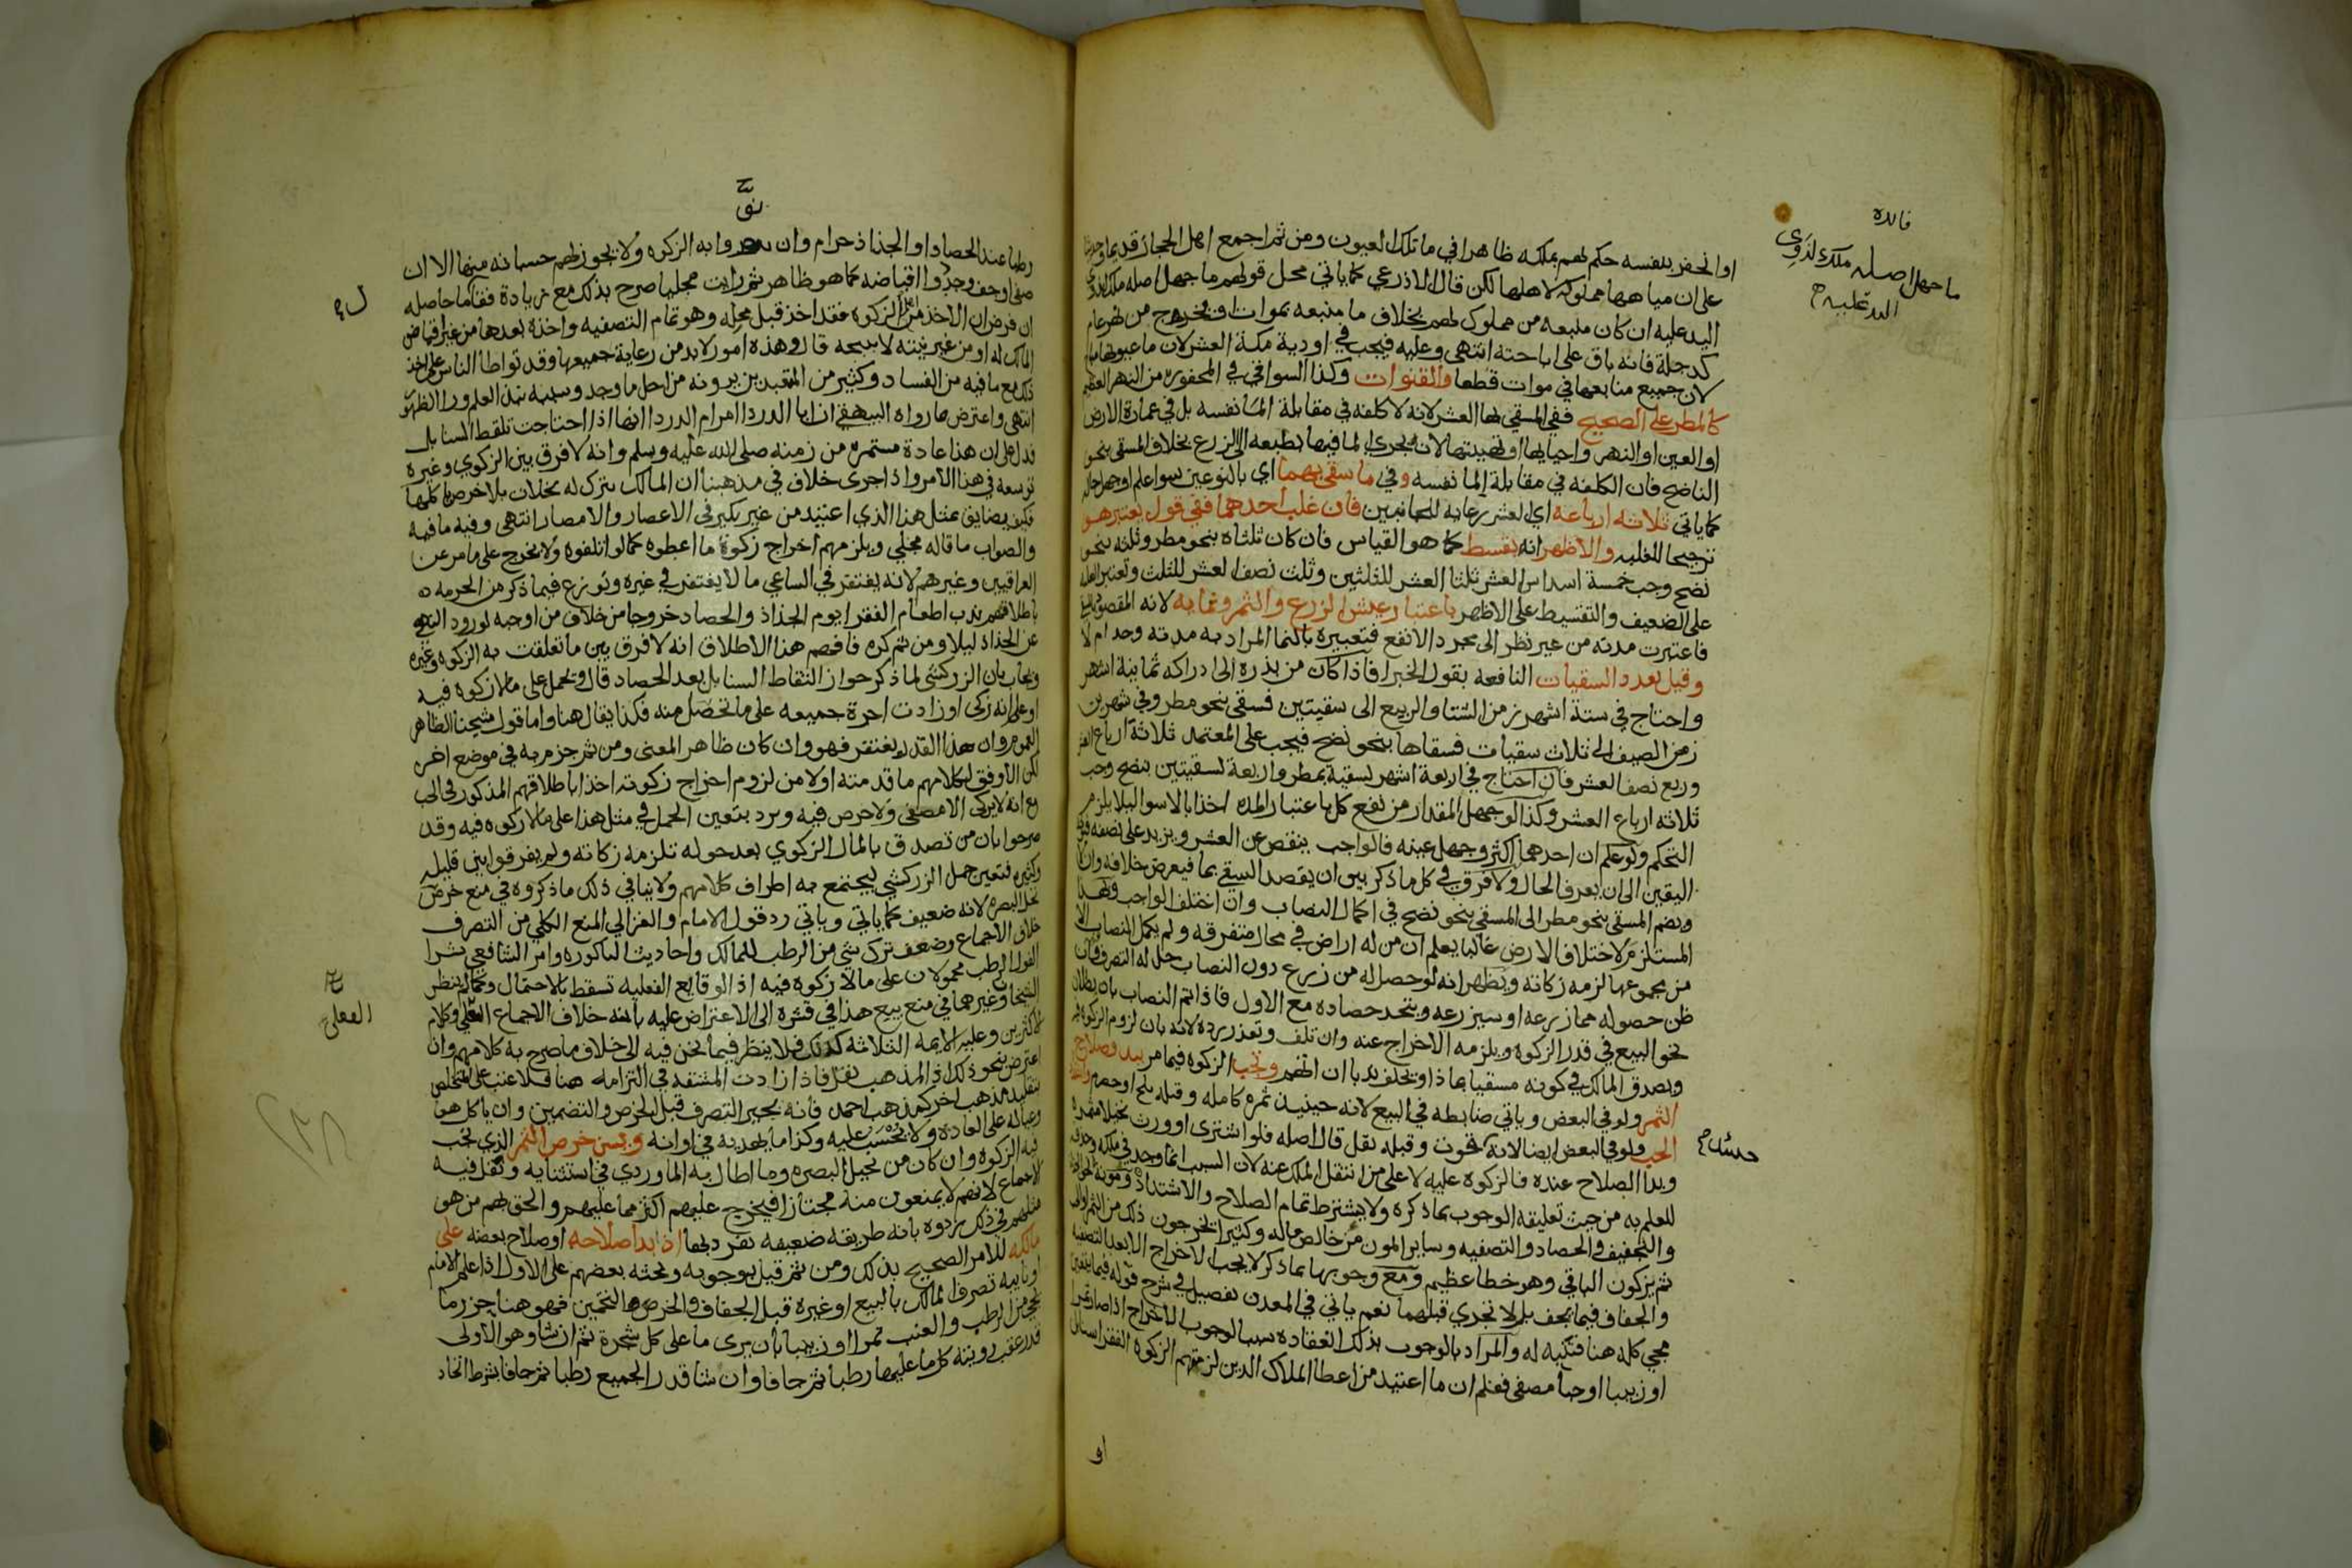 فائدة
ما جهل اصله ملك لذوي
اليد عليه
او انحفر بنفسه حكم لهم بملكه ظاهرا في ما تلك العيون ومن ثم اجمع اهل الحجاز قديما وحديثا
على ان مياهها مملوكة لاهلها لكن قال الاذرعي كما ياتي محل قولهم ما جهل اصله ملك لذوي
اليد عليه ان كان منبعه من مملوك لهم بخلاف ما منبعه بموات او يخرج من نهر عام
كدجلة فانه باق على اباحته انتهى وعليه فيجب في اودية مكة العشر لان ما عيونها مباح
لان جميع منابعها في موات قطعا والقنوات وكذا السواقي في المحفورة من النهر العظيم
كالمطر على الصحيح ففي المسقي بها العشر لانه لا كلفه في مقابلة الما نفسه بل في عمارة الارض
او العين او النهر واحيايها او تهيئتها لان يجري الما فيها بطبعه الى الزرع بخلاف المسقي بنحو
الناضح فان الكلفه في مقابلة الما نفسه وفي ما سقي بهما اي بالنوعين سواعلم او جهل حاله
كما ياتي ثلاثه ارباعه اي العشر رعاية للجانبين فان غلب احدهما ففي قول يعتبر هو
ترجيحا للغلبه والاظهر انه يقسط كما هو القياس فان كان ثلثاه بنحو مطر وثلثه بنحو
نضح وجب خمسة اسداس العشر ثلثا العشر للثلثين وثلث نصف العشر للثلث وتعتبر الغلبه
على الضعيف والتقسيط على الاظهر باعتبار عيش الزرع والثمر ونمايه لانه المقصود بالسقي
فاعتبرت مدته من غير نظر الى مجرد الانفع فتعبيره بالنما المراد به مدته وحد ام لا
وقيل بعدد السقيات النافعه بقول الخبرا فاذا كان من بذره الى ادراكه ثمانية اشهر
واحتاج في ستة اشهر زمن الشتا والربيع الى سقيتين فسقي بنحو مطر وفي شهرين
زمن الصيف الى ثلاث سقيات فسقاها بنحو نضح فيجب على المعتمد ثلاثة ارباع العشر
وربع نصف العشر فان احتاج في اربعة اشهر لسقية بمطر واربعة لسقيتين بنضح وجب
ثلاثه ارباع العشر وكذا لو جهل المقدار من نفع كل باعتبار المده اخذا بالاسوا ليلا يلزم
التحكم ولو علم ان احدهما اكثر وجهل عينه فالواجب ينقص عن العشر ويزيد على نصفه
اليقين الى ان يعرف الحال ولا فرق في كل ما ذكر بين ان يقصد السقي بما فيعرض خلافه وان لا
ويضم المسقي بنحو مطر الى المسقي بنحو نضح في اكمال النصاب وان اختلف الواجب وبهذا
المستلزم لاختلاف الارض غالبا يعلم ان من له اراض في محال متفرقه ولم يكمل النصاب الا
من مجموعها لزمه زكاته ويظهر انه لو حصل له من زرع دون النصاب حل له التصرف وان
ظن حصوله مما زرعه او سيزرعه ويتحد حصاده مع الاول فاذا تم النصاب بان بطلان
نحو البيع في قدر الزكوه ويلزمه الاخراج عنه وان تلف وتعذر رده لانه بان لزوم الزكوه
ويصدق المالك في كونه مسقيا بماذا ويحلف ندبا ان اتهم وتجب الزكوه فيما مر ببدو صلاح
الثمر ولو في البعض وياتي ضابطه في البيع لانه حينيذ ثمره كامله وقبله بلح او حصرم
الحب ولو في البعض ايضا لانه وقبله بقل قال اصله فلو اشترى او ورث نخيلا مثمره
وبدا الصلاح عنده فالزكوة عليه لا على من انتقل الملك عنه لان السبب انما وجد في ملكه
للعلم به من حيث تعليقه الوجوب بما ذكره ولا يشترط تمام الصلاح والاشتداد وموونه
والتجفيف والحصاد والتصفيه وساير المون من خالص ماله وكثيرا يخرجون ذلك من الثمر
ثم يزكون الباقي وهو خطا عظيم ومع وجوبها بما ذكر لا يجب الاخراج الا بعد التصفيه
والجفاف فيما يجف بل لا تجزي قبلهما نعم ياتي في المعدن تفصيل في شرح قوله
مجي كله هنا فتنبه له والمراد بالوجوب بذلك انعقاده سببا لوجوب الاخراج اذا صار تمرا
او زبيبا او حبا مصفى فعلم ان ما اعتيد من اعطا الملاك الذين لزمتهم الزكوة الفقرا سنابل
او
رطبا عند الحصاد او الجذاذ حرام وان نووا به الزكوه ولا يجوز لهم حسبانه منها الا ان
صفي او جف وجددوا اقباضه كما هو ظاهر ثم رايت مجليا صرح بذلك مع زيادة فقال ما حاصله
ان فرض ان الاخذ من اهل الزكوه فقد اخذ قبل محله وهو تمام التصفيه واخذه بعدها من غير اقباض
المالك له او من غير نيته لا يبيحه قال وهذه امور لا بد من رعاية جميعها وقد تواطا الناس على اخذ
ذلك مع ما فيه من الفساد وكثير من المتعبدين يرونه من احل ما وجد وسببه نبذ العلم ورا الظهور
انتهى واعترض ما رواه البيهقي ان ابا الدردا امر ام الدردا انها اذا احتاجت تلتقط السنابل
فدل على ان هذا عادة مستمره من زمنه صلى الله عليه وسلم وانه لا فرق بين الزكوي وغيره
توسعه في هذا الامر واذا جرى خلاف في مذهبنا ان المالك يترك له نخلات بلا خرص ياكلها
فكيف يضايق بمثل هذا الذي اعتيد من غير نكير في الاعصار والامصار انتهى وفيه ما فيه
والصواب ما قاله مجلي ويلزمهم اخراج زكوة ما اعطوه كما لو اتلفوه ولا يخرج على ما مر عن
العراقيين وغيرهم لانه يغتفر في الساعي ما لا يغتفر في غيره ونوزع فيما ذكر من الحرمه
باطلاقهم ندب اطعام الفقرا يوم الجذاذ والحصاد خروجا من خلاف من اوجبه لورود النهي
عن الجذاذ ليلا ومن ثم كره فافهم هذا الاطلاق انه لا فرق بين ما تعلقت به الزكوه وغيره
ويجاب بان الزركشي لما ذكر جواز التقاط السنابل بعد الحصاد قال ويحمل على ما لا زكوه فيه
او على انه زكي او زادت اجرة جميعه على ما تحصل منه فكذا يقال هنا واما قول شيخنا الظاهر
العموم وان هذا القدر يغتفر فهو وان كان ظاهر المعنى ومن ثم جزم به في موضع اخر
لكن الاوفق لكلامهم ما قدمته اولا من لزوم اخراج زكوته اخذا باطلاقهم المذكور في الحب
مع انه لا يزكى الا مصفى ولا خرص فيه ويرد بتعين الحمل في مثل هذا على ما لا زكوه فيه وقد
صرحوا بان من تصدق بالمال الزكوي بعد حوله تلزمه زكاته ولم يفرقوا بين قليله
وكثيره فتعين حمل الزركشي ليجتمع به اطراف كلامهم ولا ينافي ذلك ما ذكروه في منع خرص
نخل البصره لانه ضعيف كما ياتي وياتي رد قول الامام والغزالي المنع الكلي من التصرف
خلاف الاجماع وضعف ترك شي من الرطب للمالك واحاديث الباكوره وامر الشافعي بشرا
الفول الرطب محمولان على ما لا زكوه فيه اذ الوقايع الفعليه تسقط بالاحتمال وكما لا ينظر
الشيخان وغيرهما في منع بيع هذا في قشره الى الاعتراض عليه بانه خلاف الاجماع الفعلي وكلام
الاكثرين وعليه الايمه الثلاثه كذلك فلا ينظر فيما نحن فيه الى خلاف ما صرح به كلامهم وان
اعترض بنحو ذلك اذ المذهب نقل فاذا زادت المشقه في التزامه هنا فلا عتب على المتخلص
بتقليد مذهب اخر كمذهب احمد فانه يجيز التصرف قبل الخرص والتضمين وان ياكل هو
وعياله على العاده ولا يحسب عليه وكذا ما يهديه في اوانه ويسن خرص الثمر الذي تجب
فيه الزكوه وان كان من نخيل البصره وما اطال به الماوردي في استثنايه ونقل فيه
الاجماع لانهم لا يمنعون منه مجتازا فيخرج عليهم اكثر مما عليهم والحق بهم من هو
مثلهم في ذلك ردوه بانه طريقه ضعيفه تفرد بها اذا بدا صلاحه او صلاح بعضه على
مالكه للامر الصحيح بذلك ومن ثم قيل بوجوبه وبحثه بعضهم على الاول اذا علم الامام
او نايبه تصرف المالك بالبيع او غيره قبل الجفاف والخرص التخمين فهو هنا حزر ما
يجي من الرطب والعنب تمرا او زبيبا بان يرى ما على كل شجرة ثم ان شا وهو الاولى
قدر عقب رويته كل ما عليها رطبا ثم جافا وان شا قدر الجميع رطبا ثم جافا بشرط اتحاد
الفعلي